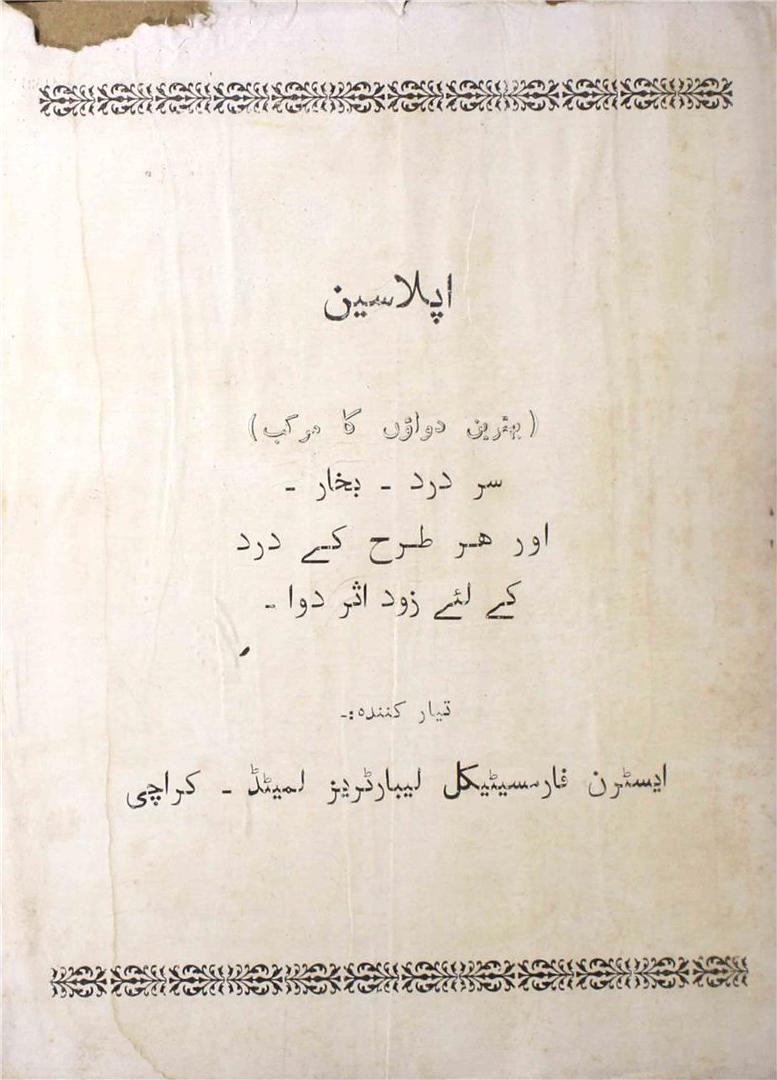 اپلاسین
(بہترین دواؤں کا مرکب)
سر درد ۔ بخار ۔
اور ہر طرح کے درد
کے لئے زود اثر دوا ۔
تیار کنندہ:۔
ایسٹرن فارمسیٹیکل لیبارٹریز لمیٹڈ ۔ کراچی